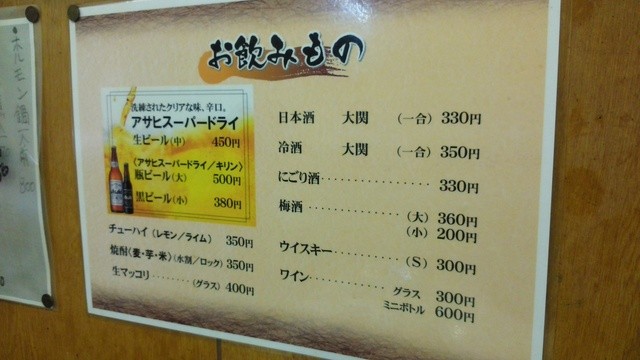 ホルモン鍋一人前
お飲みもの
洗練されたクリアな味、辛口。
アサヒスーパードライ
生ビール(中) 450円
〈アサヒスーパードライ/キリン〉
瓶ビール(大) 500円
黒ビール(小) 380円
チューハイ(レモン/ライム) 350円
焼酎〈麦・芋・米〉(水割/ロック) 350円
生マッコリ………(グラス) 400円
日本酒 大関 (一合) 330円
冷酒 大関 (一合) 350円
にごり酒……………… 330円
梅酒……………(大) 360円
(小) 200円
ウイスキー…………(S) 300円
ワイン……………グラス 300円
ミニボトル 600円